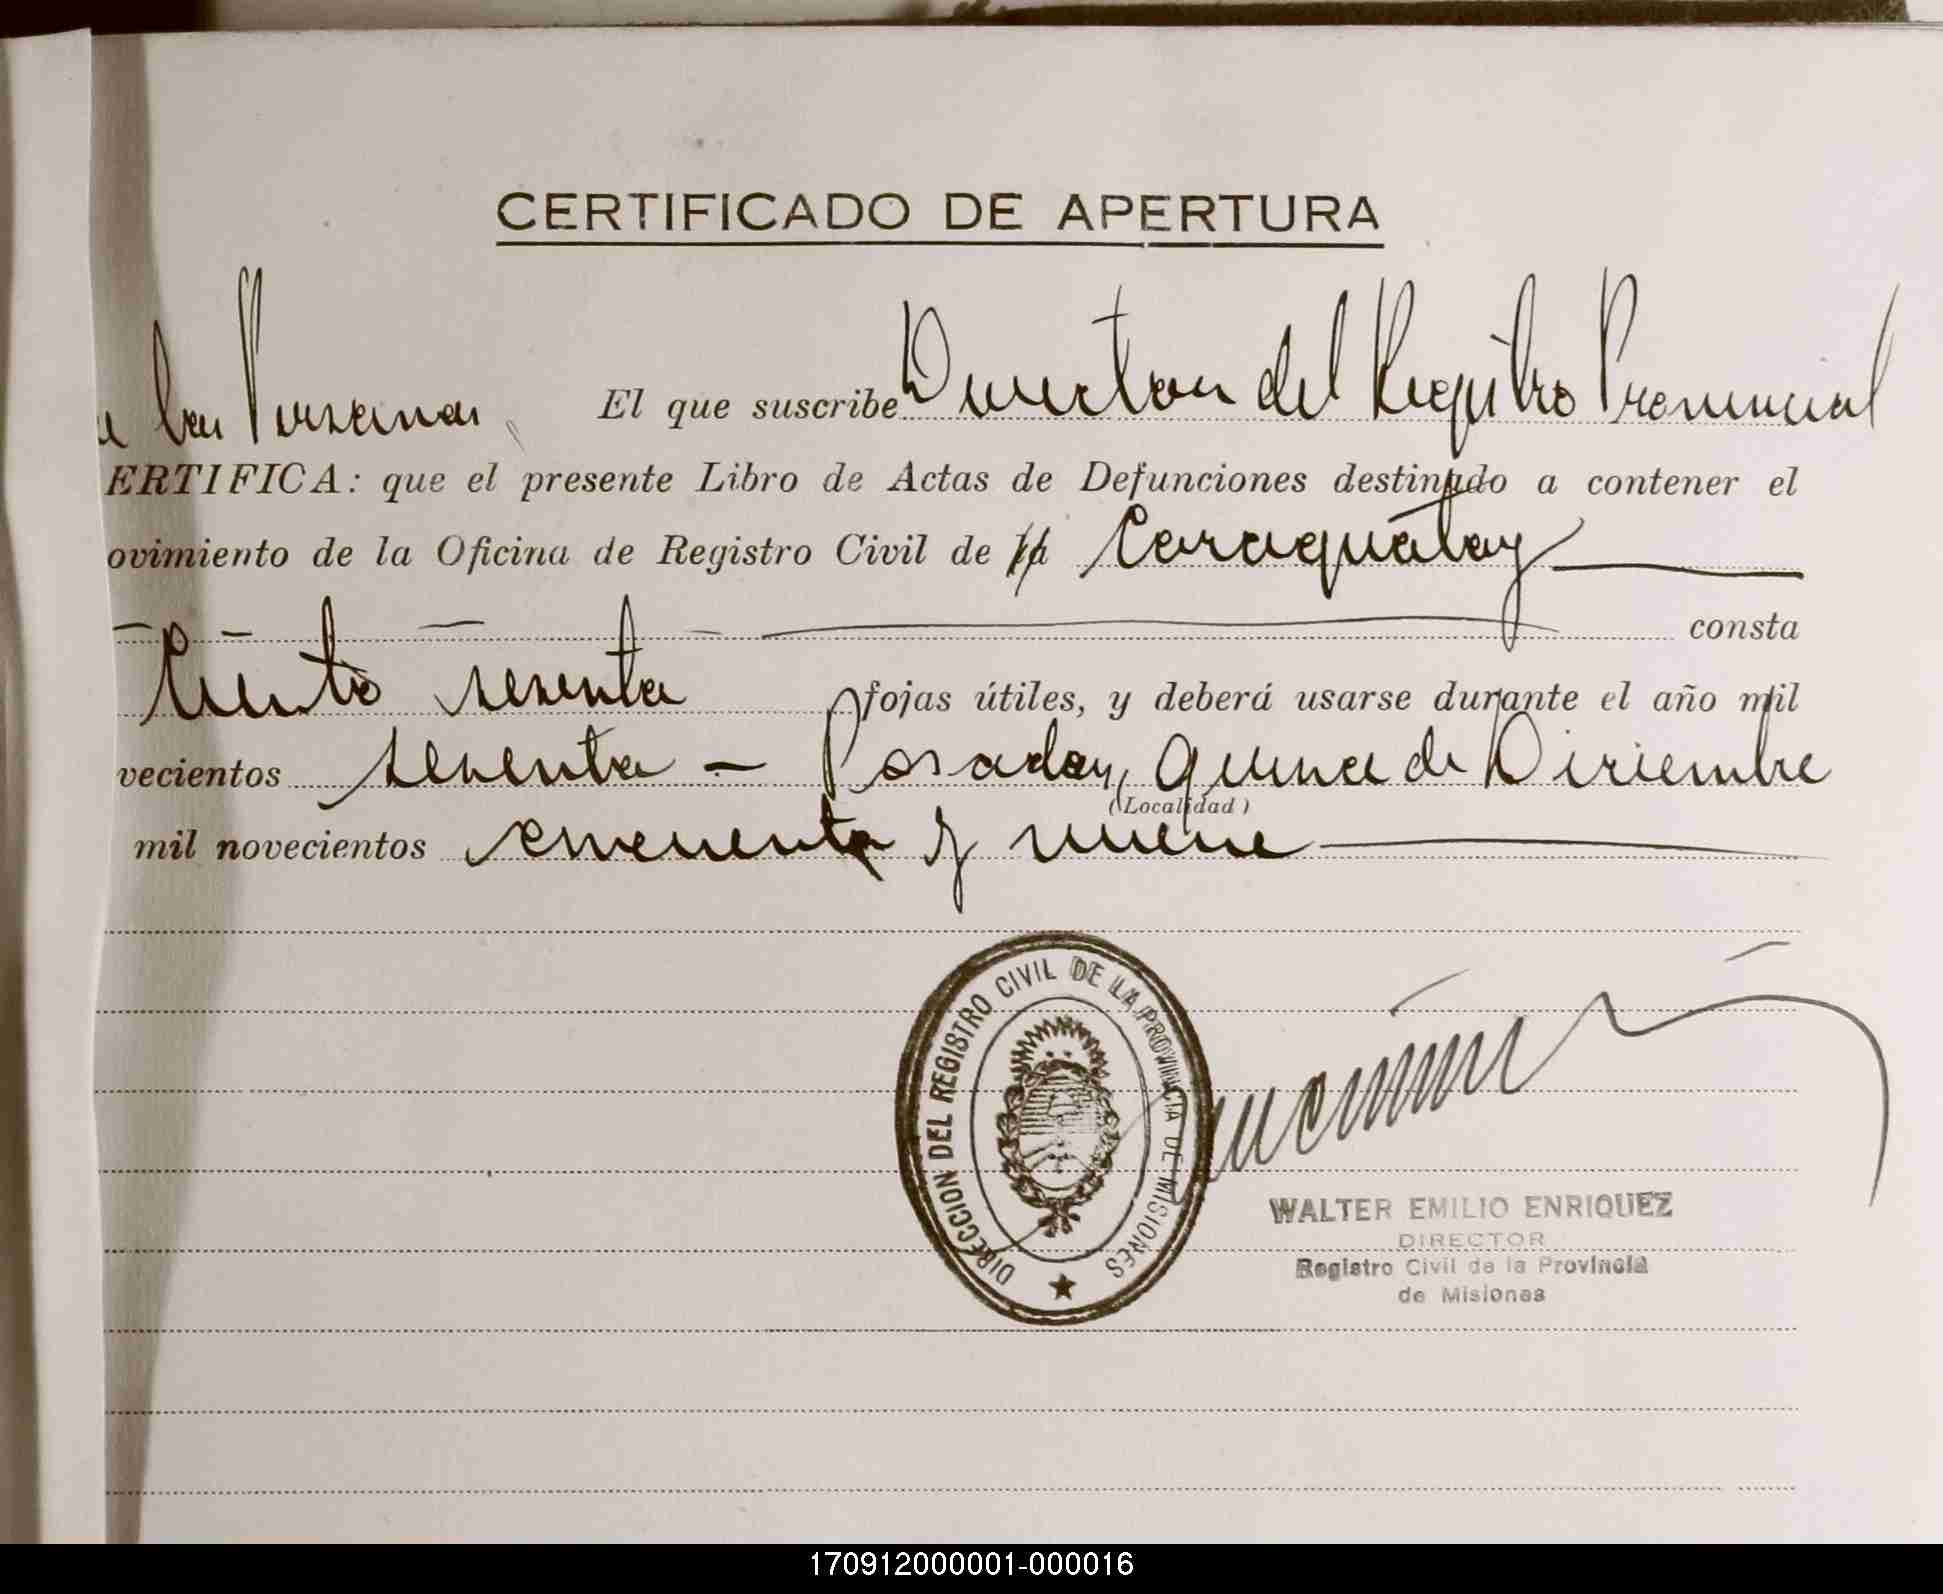 CERTIFICADO DE APERTURA
El que suscribe Director del Registro Provincial
de las Personas
ERTIFICA: que el presente Libro de Actas de Defunciones destinado a contener el
ovimiento de la Oficina de Registro Civil de la Caraguatay
consta
Ciento sesenta fojas útiles, y deberá usarse durante el año mil
vecientos sesenta - Posadas, quince de Diciembre
(Localidad)
mil novecientos cincuenta y nueve
DIRECCION DEL REGISTRO CIVIL DE LA PROVINCIA DE MISIONES
WALTER EMILIO ENRIQUEZ
DIRECTOR
Registro Civil de la Provincia
de Misiones
170912000001-000016